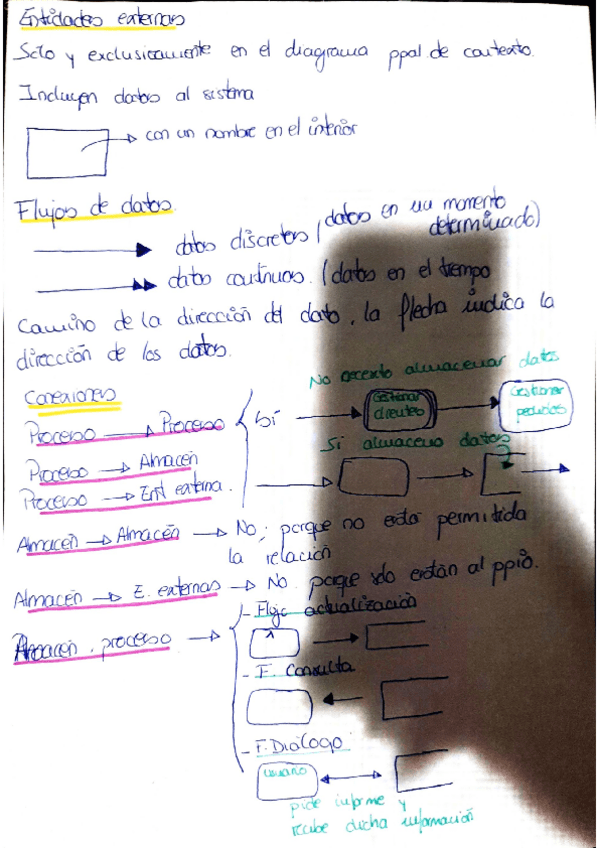 Entidades externas
Solo y exclusivamente en el diagrama ppal de contexto.
Incluyen datos al sistema
con un nombre en el interior
Flujos de datos.
datos discretos (datos en un momento determinado)
datos continuos. (datos en el tiempo
Camino de la dirección del dato, la flecha indica la
dirección de los datos.
Conexiones
No necesito almacenar datos
Proceso → Proceso
Sí
Gestionar
clientes
Gestionar
pedidos
Si almaceno datos
Proceso → Almacén
Proceso → Ent externa.
Almacén → Almacén → No, porque no está permitida
la relación
Almacén → E. externas → No porque solo están al ppio.
Almacén . proceso →
- Flujo actualización
- F. Consulta
- F. Diálogo
usuario
pide informe y
recibe dicha información